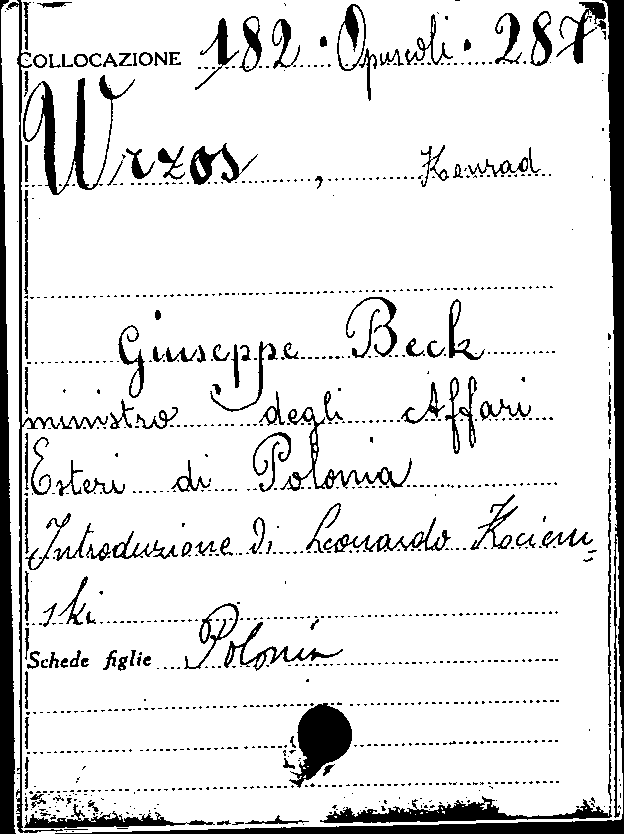 COLLOCAZIONE 182 · Opuscoli · 287
Wrzos, Konrad
Giuseppe Beck
ministro degli Affari
Esteri di Polonia
Introduzione di Leonardo Kociem=
ski
Schede figlie Polonia